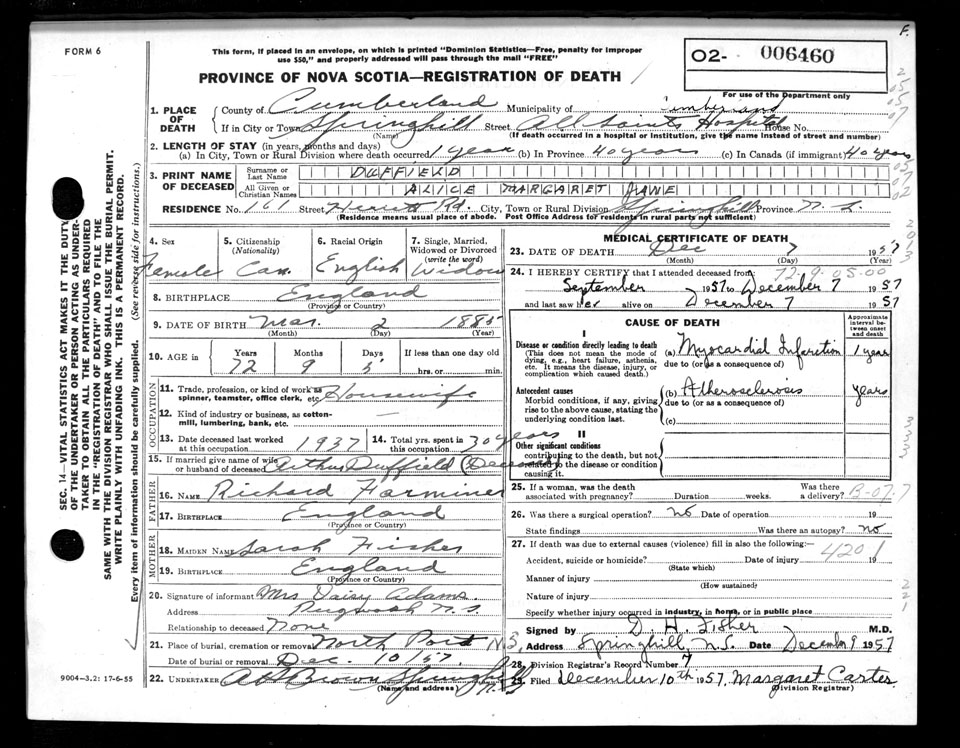 F.
FORM 6
This form, if placed in an envelope, on which is printed "Dominion Statistics—Free, penalty for improper
use $50," and properly addressed will pass through the mail "FREE"
PROVINCE OF NOVA SCOTIA—REGISTRATION OF DEATH
O2- 006460
For use of the Department only
1. PLACE OF DEATH
County of Cumberland Municipality of Cumberland
If in City or Town Springhill Street All Saints Hospital House No.
(Name) (If death occurred in a hospital or institution, give the name instead of street and number)
2. LENGTH OF STAY (in years, months and days)
(a) In City, Town or Rural Division where death occurred 1 year (b) In Province 40 years (c) In Canada (if immigrant) 40 years
3. PRINT NAME OF DECEASED
Surname or Last Name DUFFIELD
All Given or Christian Names ALICE MARGARET JANE
RESIDENCE No. 161 Street Herrett Rd. City, Town or Rural Division Springhill Province N.S.
(Residence means usual place of abode. Post Office Address for residents in rural parts not sufficient)
4. Sex Female
5. Citizenship (Nationality) Can.
6. Racial Origin English
7. Single, Married, Widowed or Divorced (write the word) Widow
8. BIRTHPLACE England
(Province or Country)
9. DATE OF BIRTH Mar. 2 1885
(Month) (Day) (Year)
10. AGE in Years Months Days If less than one day old
72 9 5 hrs. or min.
OCCUPATION
11. Trade, profession, or kind of work as
spinner, teamster, office clerk, etc. Housewife
12. Kind of industry or business, as cotton-
mill, lumbering, bank, etc. —
13. Date deceased last worked at this occupation 1937
14. Total yrs. spent in this occupation 30 years
15. If married give name of wife
or husband of deceased Arthur Duffield (Deceased)
FATHER
16. NAME Richard
17. BIRTHPLACE England
(Province or Country)
MOTHER
18. MAIDEN NAME Sarah Fisher
19. BIRTHPLACE England
(Province or Country)
20. Signature of informant Mrs Daisy Adams
Address Pugwash N.S.
Relationship to deceased None
21. Place of burial, cremation or removal North Port N.S.
Date of burial or removal Dec. 10/57.
22. UNDERTAKER Brown Springhill N.S.
(Name and address)
9004—3.2: 17-6-55
MEDICAL CERTIFICATE OF DEATH
23. DATE OF DEATH Dec 7 1957
(Month) (Day) (Year)
24. I HEREBY CERTIFY that I attended deceased from: 72-9-05-00
September 1957 to December 7 1957
and last saw her alive on December 7 1957
CAUSE OF DEATH
Approximate interval between onset and death
I
Disease or condition directly leading to death
(This does not mean the mode of
dying, e.g., heart failure, asthenia,
etc. It means the disease, injury, or
complication which caused death.)
(a) Myocardial Infarction 1 year
due to (or as a consequence of)
Antecedent causes
Morbid conditions, if any, giving
rise to the above cause, stating the
underlying condition last.
(b) Atherosclerosis years
due to (or as a consequence of)
(c)
II
Other significant conditions
contributing to the death, but not
related to the disease or condition
causing it.
25. If a woman, was the death
associated with pregnancy? Duration weeks. Was there a delivery? B-07-7
26. Was there a surgical operation? No Date of operation 19
State findings Was there an autopsy? No
27. If death was due to external causes (violence) fill in also the following:—
Accident, suicide or homicide? Date of injury 19
(State which) 420 1
Manner of injury
(How sustained)
Nature of injury
Specify whether injury occurred in industry, in home, or in public place
Signed by D. H. Fisher M.D.
Address Springhill, N.S. Date December 9 1957
28. Division Registrar's Record Number 7
29. Filed December 10th 1957, Margaret Carter
(Division Registrar)
SEC. 14—VITAL STATISTICS ACT MAKES IT THE DUTY
OF THE UNDERTAKER OR PERSON ACTING AS UNDER-
TAKER TO OBTAIN ALL THE PARTICULARS REQUIRED
IN THE "REGISTRATION OF DEATH" AND TO FILE THE
SAME WITH THE DIVISION REGISTRAR WHO SHALL ISSUE THE BURIAL PERMIT.
WRITE PLAINLY WITH UNFADING INK. THIS IS A PERMANENT RECORD.
Every item of information should be carefully supplied. (See reverse side for instructions.)